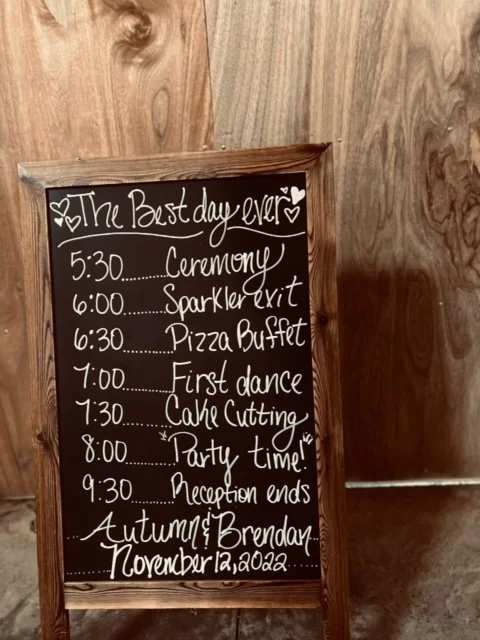 The Best day ever
5:30........Ceremony
6:00........Sparkler exit
6:30........Pizza Buffet
7:00........First dance
7:30........Cake Cutting
8:00........"Party time!"
9:30........Reception ends
Autumn & Brendan
November 12, 2022